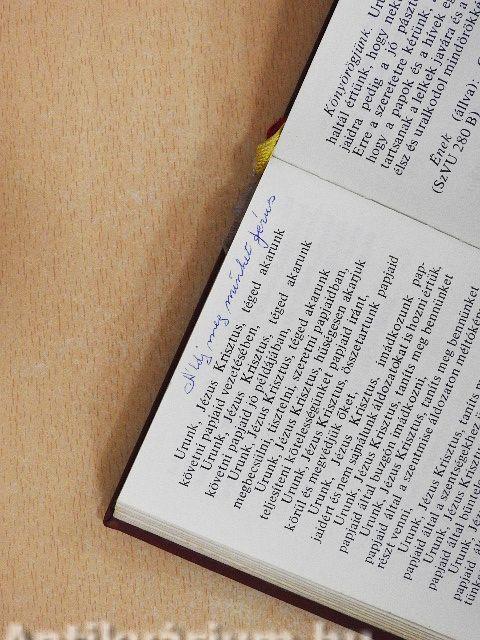 Könyörögjünk. Ur
haltál értünk, hogy nek
jaidra pedig a jó pászto
Erre a szeretetre kérünk,
hogy a papok és a hívek eg
tartsanak a lelkek javára és a
élsz és uralkodol mindörökk
Ének (állva):
(SzVU 280 B)
Áldj meg minket Jézus
Urunk, Jézus Krisztus, téged akarunk
követni papjaid vezetésében,
Urunk, Jézus Krisztus, téged akarunk
követni papjaid jó példájában,
Urunk, Jézus Krisztus, téged akarunk
megbecsülni, tisztelni, szeretni papjaidban,
Urunk, Jézus Krisztus, hűségesen akarjuk
teljesíteni kötelességünket papjaid iránt,
Urunk, Jézus Krisztus, összetartunk papjaid
körül és megvédjük őket,
Urunk, Jézus Krisztus, imádkozunk pap-
jaidért és nem sajnálunk áldozatokat is hozni értük,
Urunk, Jézus Krisztus, taníts meg bennünket
papjaid által buzgón imádkozni,
Urunk, Jézus Krisztus, taníts meg bennünket
papjaid által a szentmise áldozaton méltóképen
részt venni,
Urunk, Jézus Krisztus, taníts m
papjaid által a szentségekhez
Urunk, Jézus Kriszt
papjaid által bűntele
Urunk, Jé
papjaid ál
tünk
Antikvárium.hu